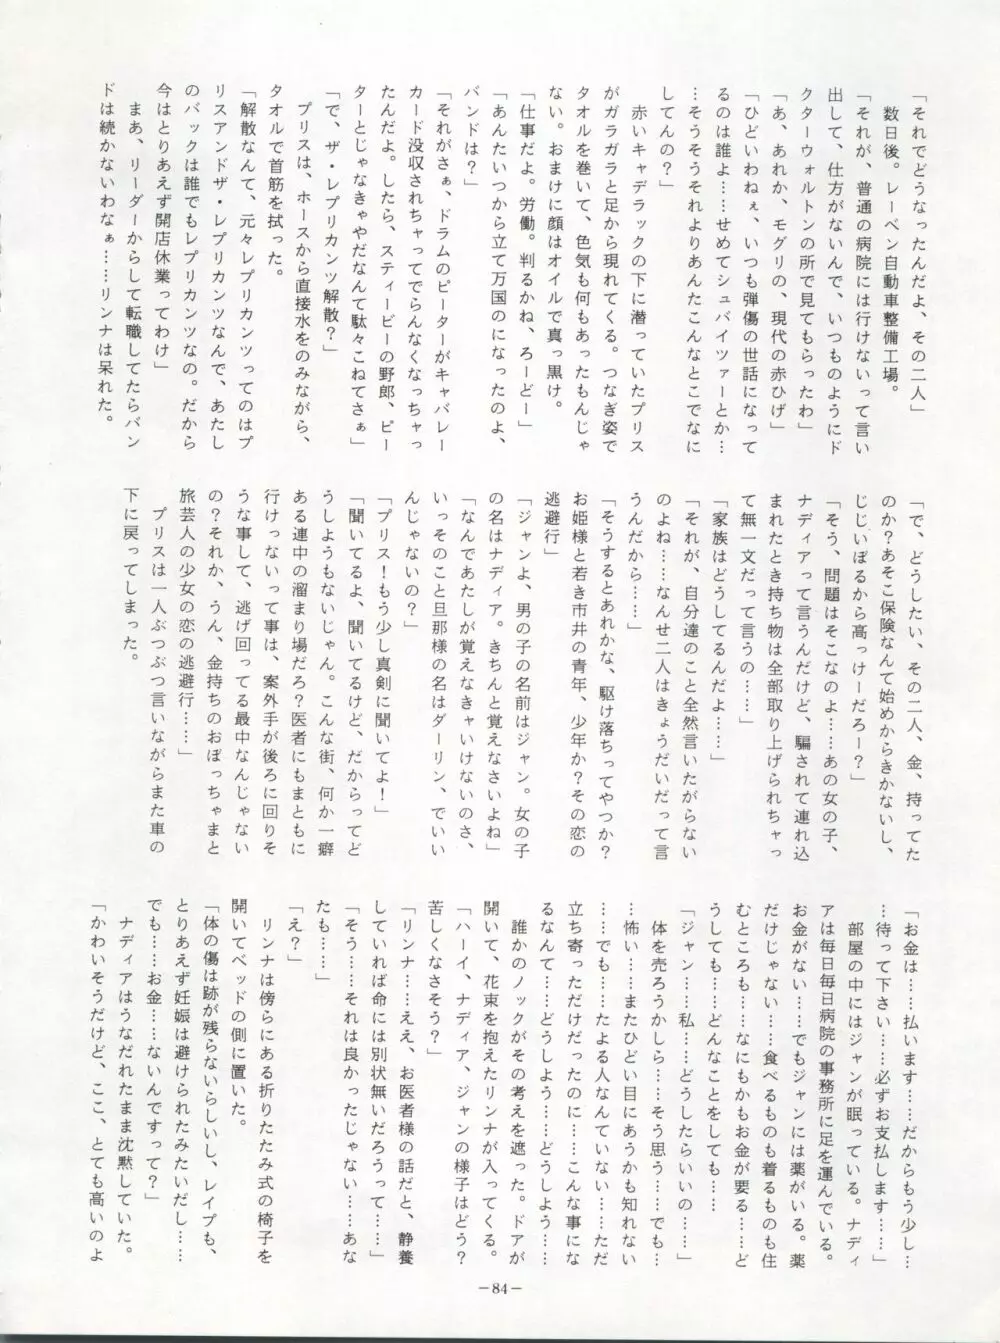 「それでどうなったんだよ、その二人」
数日後。レーベン自動車整備工場。
「それが、普通の病院には行けないって言い
出して、仕方がないんで、いつものようにド
クターウォルトンの所で見てもらったわ」
「あ、あれか、モグリの、現代の赤ひげ」
「ひどいわねぇ、いつも弾傷の世話になって
るのは誰よ……せめてシュバイツァーとか…
…そうそうそれよりあんたこんなとこでなに
してんの？」
赤いキャデラックの下に潜っていたプリス
がガラガラと足から現れてくる。つなぎ姿で
タオルを巻いて、色気も何もあったもんじゃ
ない。おまけに顔はオイルで真っ黒け。
「仕事だよ。労働。判るかね、ろーどー」
「あんたいつから立て万国のになったのよ、
バンドは？」
「それがさぁ、ドラムのピーターがキャバレー
カード没収されちゃってでらんなくなっちゃっ
たんだよ。したら、スティービーの野郎、ピー
ターとじゃなきゃやだなんて駄々こねてさぁ」
「で、ザ・レプリカンツ解散？」
プリスは、ホースから直接水をのみながら、
タオルで首筋を拭った。
「解散なんて、元々レプリカンツってのはプ
リスアンドザ・レプリカンツなんで、あたし
のバックは誰でもレプリカンツなの。だから
今はとりあえず開店休業ってわけ」
まあ、リーダーからして転職してたらバン
ドは続かないわなぁ……リンナは呆れた。
「で、どうしたい、その二人、金、持ってた
のか？あそこ保険なんて始めからきかないし、
じじいぼるから高っけーだろー？」
「そう、問題はそこなのよ……あの女の子、
ナディアって言うんだけど、騙されて連れ込
まれたとき持ち物は全部取り上げられちゃっ
て無一文だって言うの……」
「家族はどうしてるんだよ……」
「それが、自分達のこと全然言いたがらない
のよね……なんせ二人はきょうだいだって言
うんだから……」
「そうするとあれかな、駆け落ちってやつか？
お姫様と若き市井の青年、少年か？その恋の
逃避行」
「ジャンよ、男の子の名前はジャン。女の子
の名はナディア。きちんと覚えなさいよね」
「なんであたしが覚えなきャいけないのさ、
いっそのこと旦那様の名はダーリン、でいい
んじゃないの？」
「プリス！もう少し真剣に聞いてよ！」
「聞いてるよ、聞いてるけど、だからってど
うしようもないじゃん。こんな街、何か一癖
ある連中の溜まり場だろ？医者にもまともに
行けっないって事は、案外手が後ろに回りそ
うな事して、逃げ回ってる最中なんじゃない
の？それか、うん、金持ちのおぼっちゃまと
旅芸人の少女の恋の逃避行……」
プリスは一人ぶつぶつ言いながらまた車の
下に戻ってしまった。
「お金は……払います……だからもう少し…
…待って下さい……必ずお支払します……」
部屋の中にはジャンが眠っている。ナディ
アは毎日毎日病院の事務所に足を運んでいる。
お金がない……でもジャンには薬がいる。薬
だけじゃない……食べるものも着るものも住
むところも……なにもかもお金が要る……ど
うしても……どんなことをしても……
「ジャン……私……どうしたらいいの……」
体を売ろうかしら……そう思う……でも…
…怖い……またひどい目にあうかも知れない
……でも……たよる人なんていない……ただ
立ち寄っただけだったのに……こんな事にな
るなんて……どうしよう……どうしよう……
誰かのノックがその考えを遮った。ドアが
開いて、花束を抱えたリンナが入ってくる。
「ハーイ、ナディア、ジャンの様子はどう？
苦しくなさそう？」
「リンナ……ええ、お医者様の話だと、静養
していれば命には別状無いだろうって……」
「そう……それは良かったじゃない……あな
たも……」
「え？」
リンナは傍らにある折りたたみ式の椅子を
開いてベッドの側に置いた。
「体の傷は跡が残らないらしいし、レイプも、
とりあえず妊娠は避けられたみたいだし……
でも……お金……ないんですって？」
ナディアはうなだれたまま沈黙していた。
「かわいそうだけど、ここ、とても高いのよ
－84－